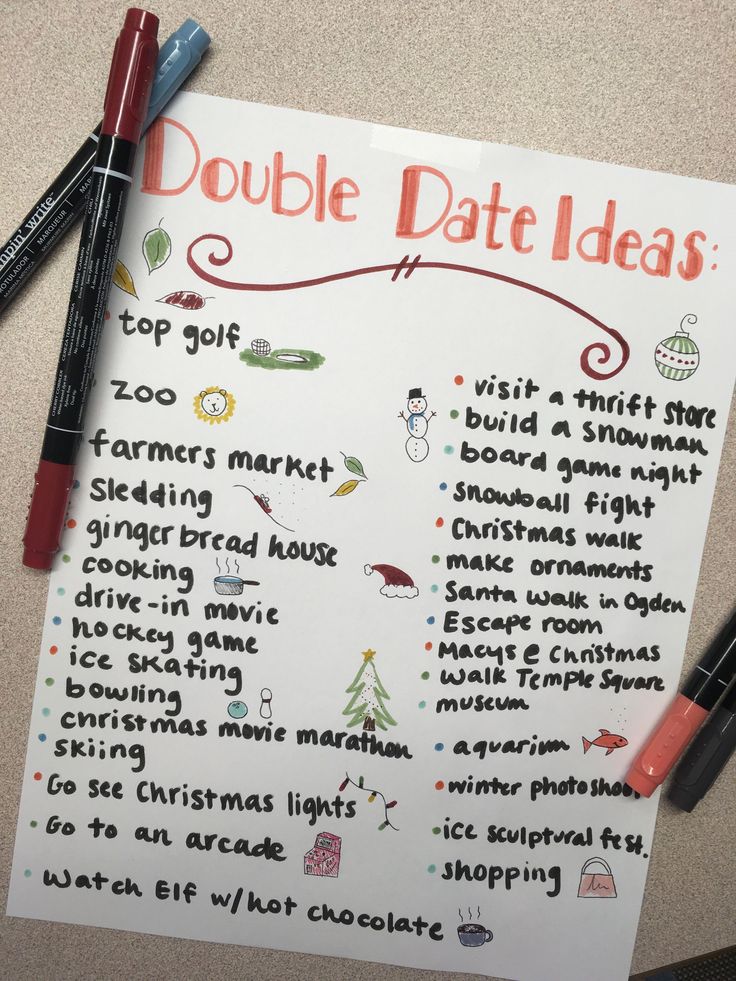 Double Date Ideas:
top golf
zoo
farmers market
sledding
gingerbread house
cooking
drive-in movie
hockey game
ice skating
bowling
christmas movie marathon
skiing
Go see Christmas lights
Go to an arcade
Watch Elf w/hot chocolate
visit a thrift store
build a snowman
board game night
snowball fight
Christmas walk
make ornaments
Santa walk in Ogden
Escape room
Macys @ Christmas
walk Temple Square
museum
aquarium
winter photoshoot
ice sculptural fest.
shopping
pin' write™
MARKER
MARQUEUR